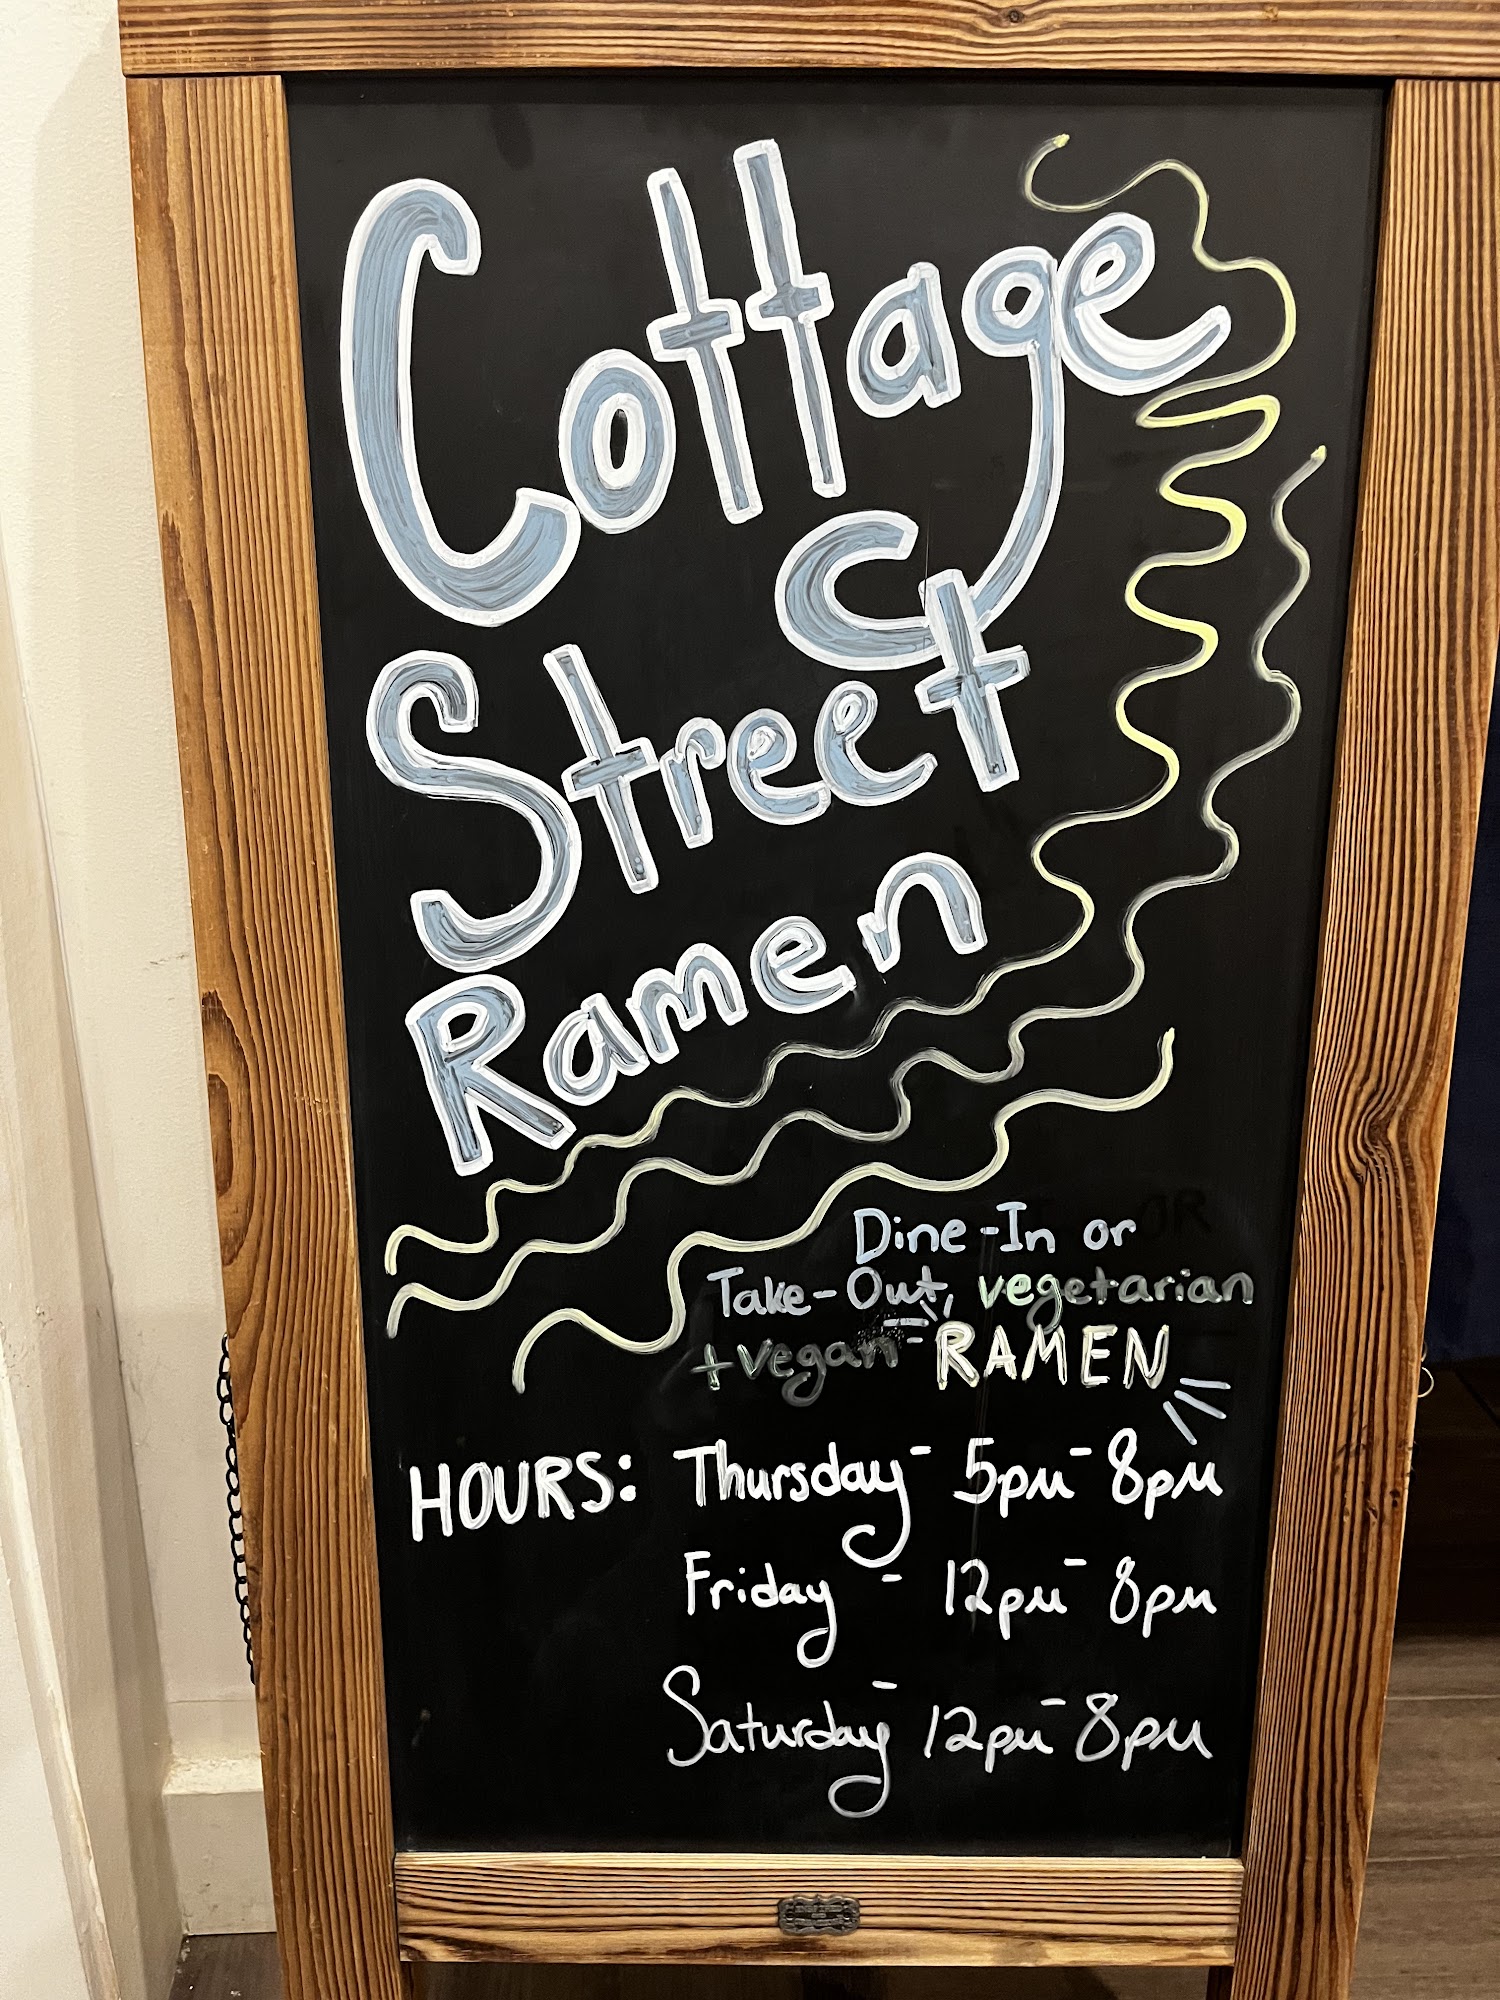 Cottage
Street
Ramen
Dine-In or
Take-Out, vegetarian
+vegan RAMEN
HOURS: Thursday - 5pm - 8pm
Friday - 12pm - 8pm
Saturday - 12pm - 8pm